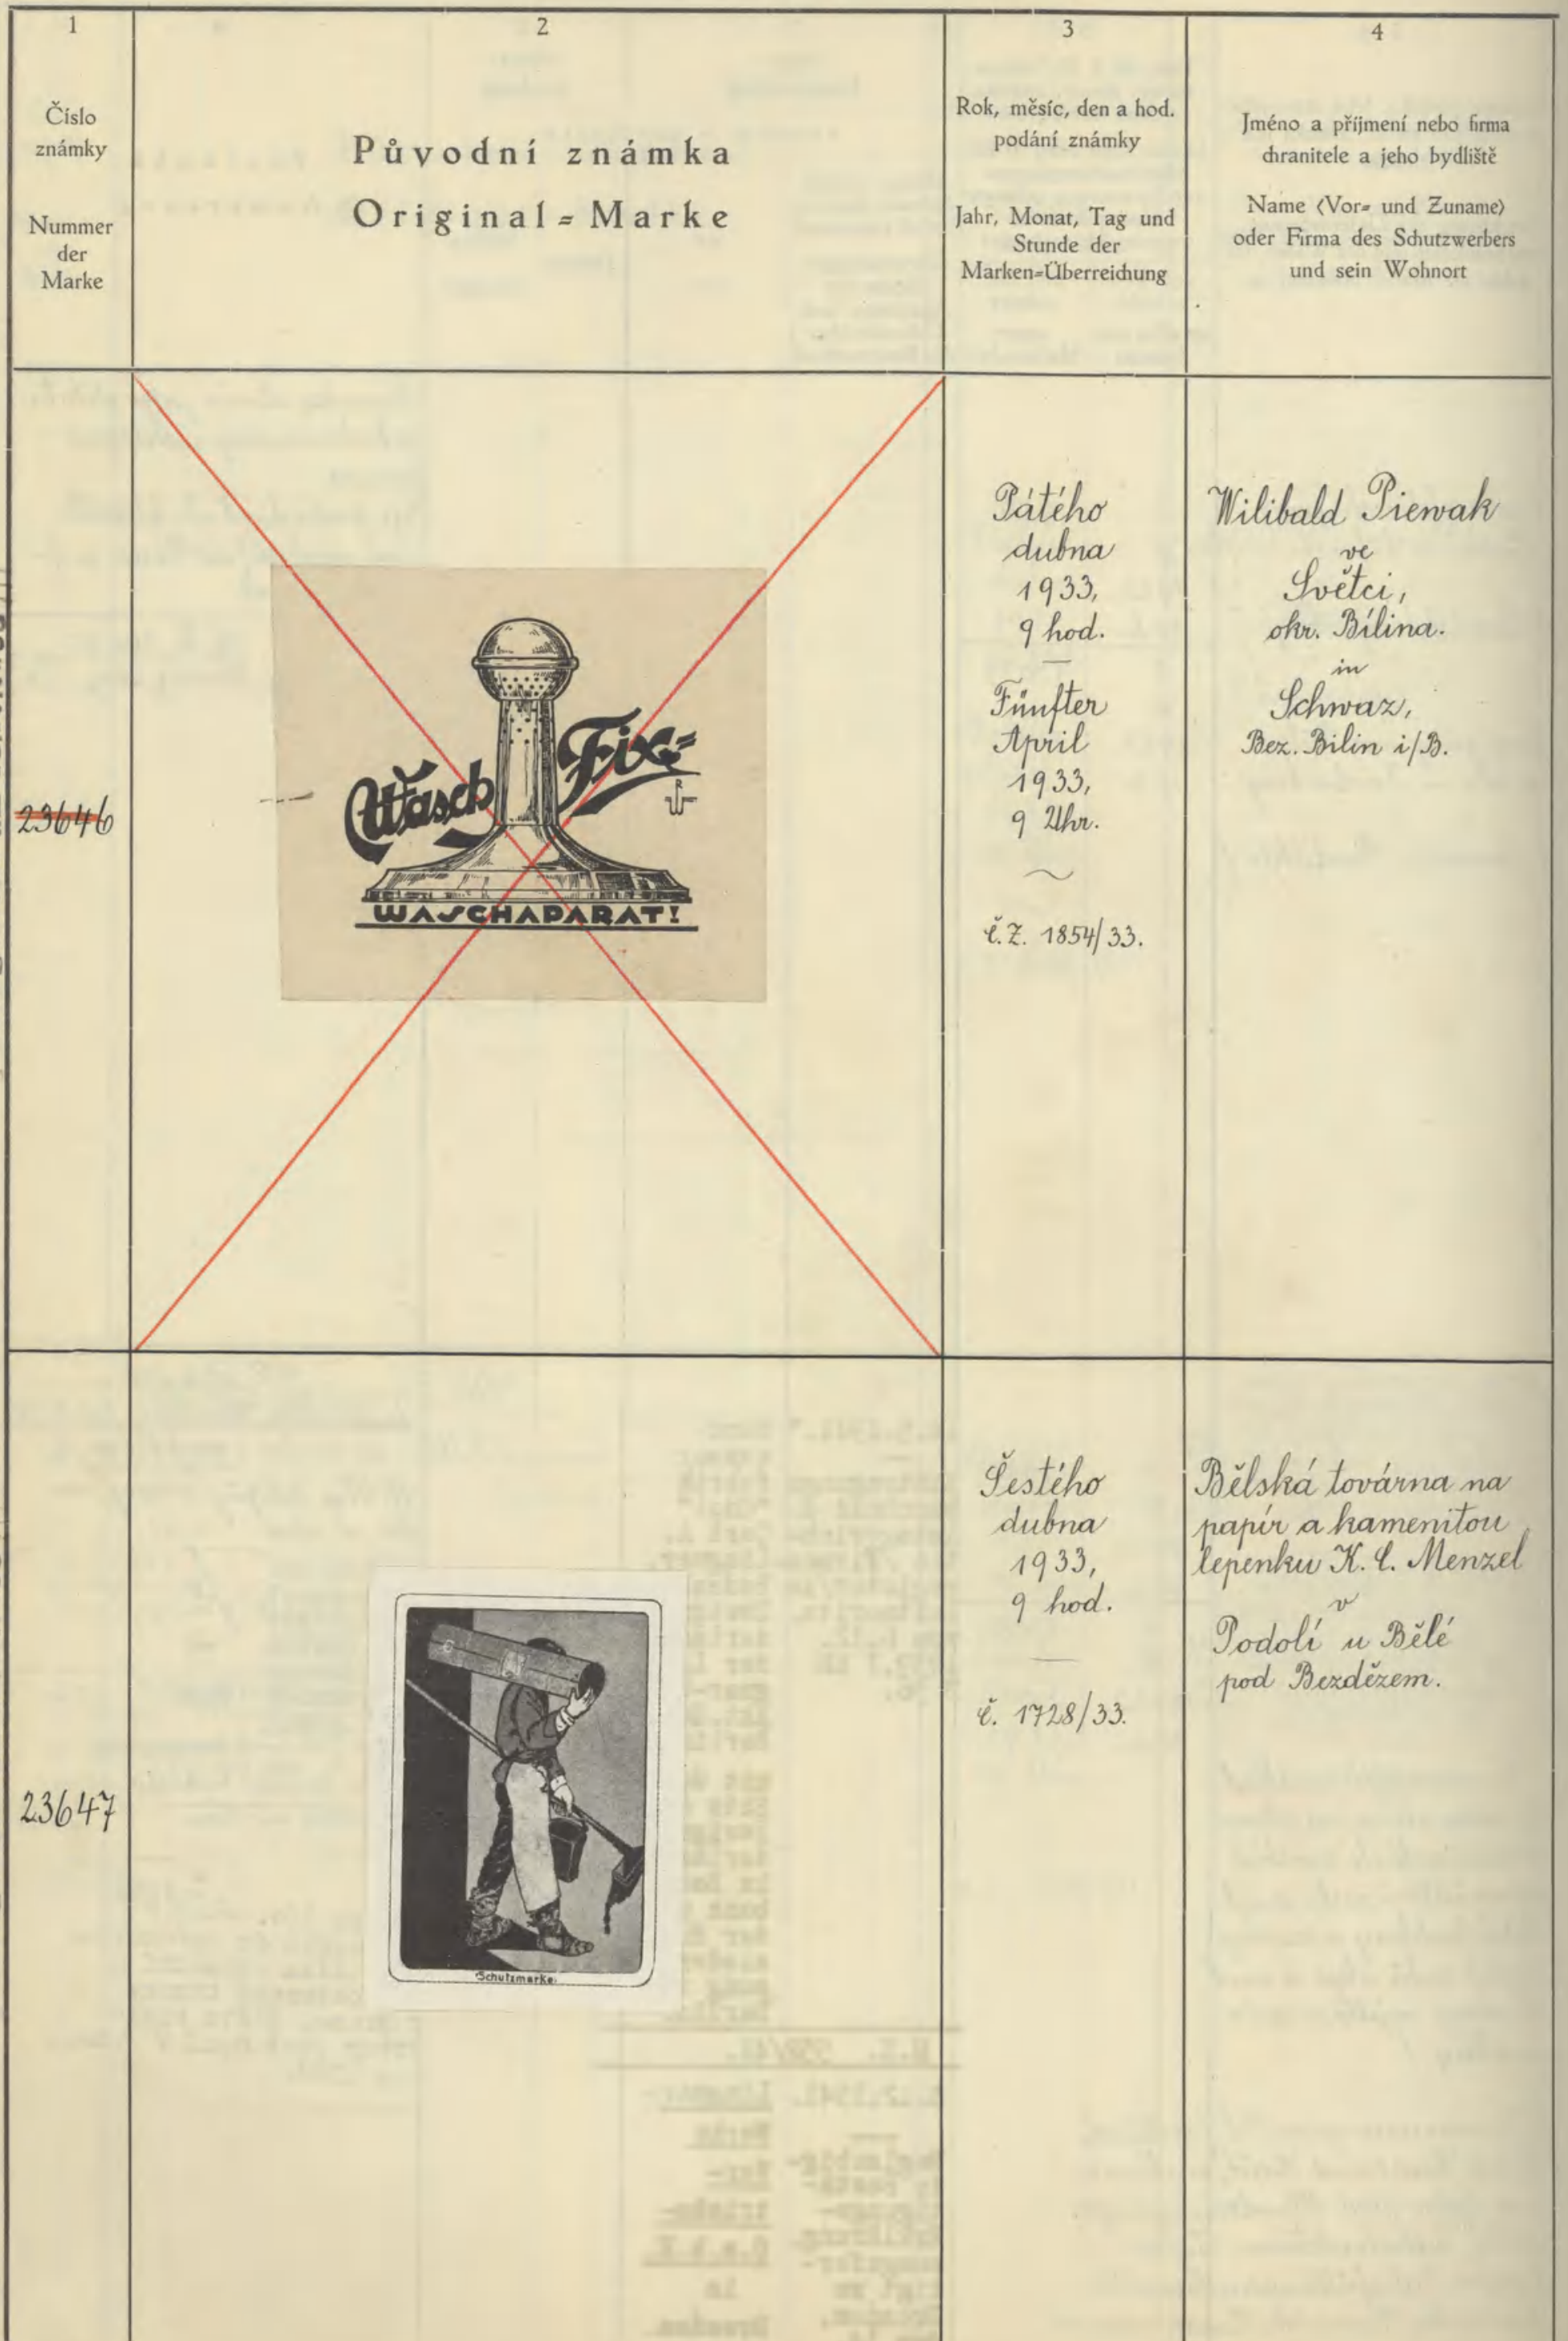 1
Číslo
známky
Nummer
der
Marke
2
Původní známka
Original=Marke
3
Rok, měsíc, den a hod.
podání známky
Jahr, Monat, Tag und
Stunde der
Marken=Überreichung
4
Jméno a příjmení nebo firma
chranitele a jeho bydliště
Name (Vor= und Zuname)
oder Firma des Schutzwerbers
und sein Wohnort
23646
Wasch Fix=
WASCHAPARAT!
Pátého
dubna
1933,
9 hod.
Fünfter
April
1933,
9 Uhr.
č.Z. 1854/33.
Wilibald Piewak
ve
Světci,
okr. Bílina.
in
Schwaz,
Bez. Bilin i/B.
23647
Schutzmarke
Šestého
dubna
1933,
9 hod.
č. 1728/33.
Bělská továrna na
papír a kamenitou
lepenku K. C. Menzel
v
Podolí u Bělé
pod Bezdězem.